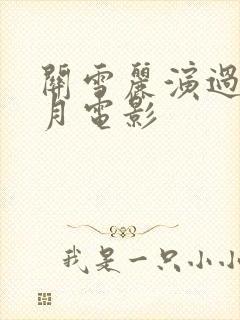 關雪麗演過
月電影
我是一只小小